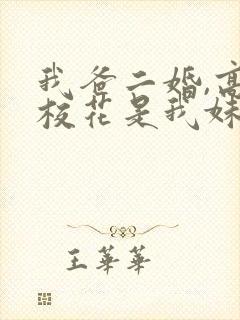 我爸二婚,高
校花是我妹
王華華